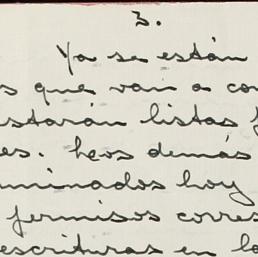 3.
Ya se están
s que van a con
starán listas
es. Los demás
minados hoy
permisos corres
escrituras en lo